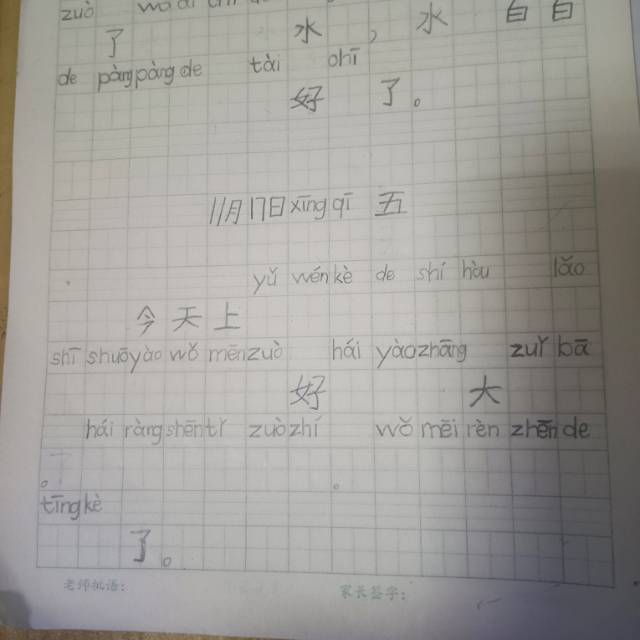 zuò
了 水，水 白白
de pàngpàng de tài
好 了。
11月17日xīng qī 五
yǔ wén kè de shí hòu lǎo
今 天 上
shī shuō yào wǒ mēn zuò hái yào zhāng zuǐ bā
好 大
hái ràng shēn tǐ zuò zhí wǒ mēi rèn zhēn de
。 。
tīng kè
了。
老师批语： 家长签字：